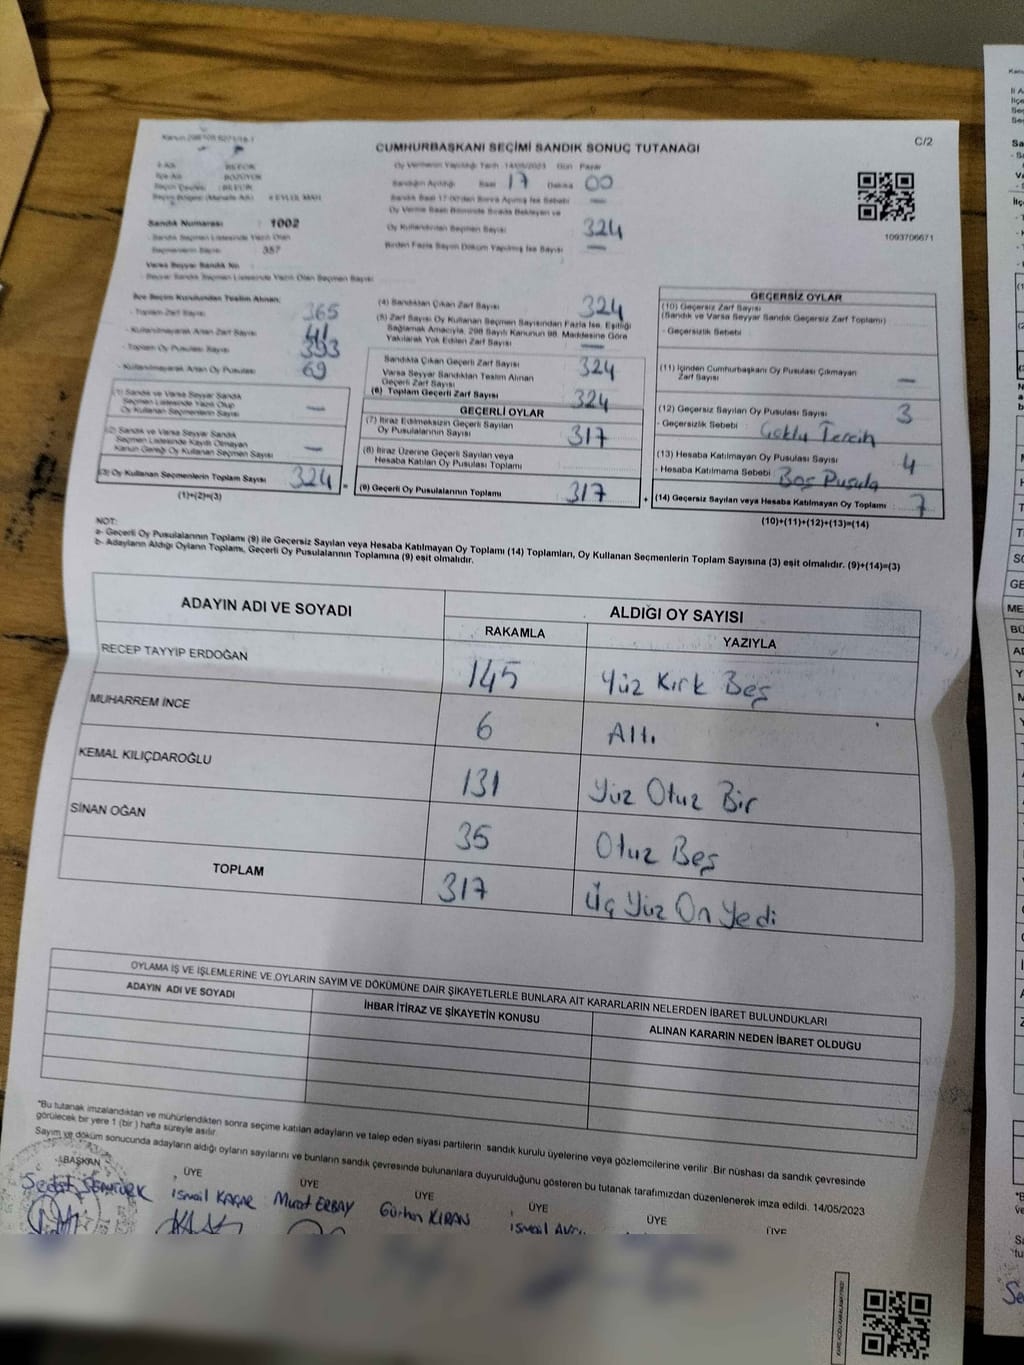 CUMHURBAŞKANI SEÇİMİ SANDIK SONUÇ TUTANAĞI
C/2
Oy Vermenin Yapıldığı Tarih 14/05/2023 Gün Pazar
Sandığın Açıldığı Saat 17 Dakika 00
Sandık Saat 17:00'den Sonra Açılmış İse Sebebi —
Oy Verme Saati Bitiminde Sırada Bekleyen ve
Oy Kullandırılan Seçmen Sayısı 324
Birden Fazla Sayım Döküm Yapılmış İse Sayısı —
1093706671
İlçe Adı : BOZÜYÜK
Sandık Numarası : 1002
- Sandık Seçmen Listesinde Yazılı Olan
Seçmenlerin Sayısı : 357
Varsa Seyyar Sandık No
- Seyyar Sandık Seçmen Listesinde Yazılı Olan Seçmen Sayısı
İlçe Seçim Kurulundan Teslim Alınan:
- Toplam Zarf Sayısı 365
- Kullanılmayarak Artan Zarf Sayısı 41
- Toplam Oy Pusulası Sayısı 393
- Kullanılmayarak Artan Oy Pusulası 69
(1) Sandık ve Varsa Seyyar Sandık
Seçmen Listesinde Yazılı Olup
Oy Kullanan Seçmenlerin Sayısı —
(2) Sandık ve Varsa Seyyar Sandık
Seçmen Listesinde Kaydı Olmayan
Kanun Gereği Oy Kullanan Seçmen Sayısı —
(3) Oy Kullanan Seçmenlerin Toplam Sayısı 324 =
(1)+(2)=(3)
(4) Sandıktan Çıkan Zarf Sayısı 324
(5) Zarf Sayısı Oy Kullanan Seçmen Sayısından Fazla İse, Eşitliği
Sağlamak Amacıyla, 298 Sayılı Kanunun 98. Maddesine Göre
Yakılarak Yok Edilen Zarf Sayısı —
Sandıkta Çıkan Geçerli Zarf Sayısı 324
Varsa Seyyar Sandıktan Teslim Alınan
Geçerli Zarf Sayısı
(6) Toplam Geçerli Zarf Sayısı 324
GEÇERLİ OYLAR
(7) İtiraz Edilmeksizin Geçerli Sayılan
Oy Pusulalarının Sayısı 317
(8) İtiraz Üzerine Geçerli Sayılan veya
Hesaba Katılan Oy Pusulaları Toplamı
(9) Geçerli Oy Pusulalarının Toplamı 317 +
GEÇERSİZ OYLAR
(10) Geçersiz Zarf Sayısı
(Sandık ve Varsa Seyyar Sandık Geçersiz Zarf Toplamı)
- Geçersizlik Sebebi
(11) İçinden Cumhurbaşkanı Oy Pusulası Çıkmayan
Zarf Sayısı —
(12) Geçersiz Sayılan Oy Pusulası Sayısı 3
- Geçersizlik Sebebi : Çoklu Tercih
(13) Hesaba Katılmayan Oy Pusulası Sayısı 4
- Hesaba Katılmama Sebebi : Boş Pusula
(14) Geçersiz Sayılan veya Hesaba Katılmayan Oy Toplamı 7
(10)+(11)+(12)+(13)=(14)
NOT:
a- Geçerli Oy Pusulalarının Toplamı (9) ile Geçersiz Sayılan veya Hesaba Katılmayan Oy Toplamı (14) Toplamları, Oy Kullanan Seçmenlerin Toplam Sayısına (3) eşit olmalıdır. (9)+(14)=(3)
b- Adayların Aldığı Oyların Toplamı, Geçerli Oy Pusulalarının Toplamına (9) eşit olmalıdır.
ADAYIN ADI VE SOYADI
ALDIĞI OY SAYISI
RAKAMLA YAZIYLA
RECEP TAYYİP ERDOĞAN 145 Yüz Kırk Beş
MUHARREM İNCE 6 Altı
KEMAL KILIÇDAROĞLU 131 Yüz Otuz Bir
SİNAN OĞAN 35 Otuz Beş
TOPLAM 317 Üç Yüz On Yedi
OYLAMA İŞ VE İŞLEMLERİNE VE OYLARIN SAYIM VE DÖKÜMÜNE DAİR ŞİKAYETLERLE BUNLARA AİT KARARLARIN NELERDEN İBARET BULUNDUKLARI
ADAYIN ADI VE SOYADI İHBAR İTİRAZ VE ŞİKAYETİN KONUSU ALINAN KARARIN NEDEN İBARET OLDUĞU
"Bu tutanak imzalandıktan ve mühürlendikten sonra seçime katılan adayların ve talep eden siyasi partilerin sandık kurulu üyelerine veya gözlemcilerine verilir. Bir nüshası da sandık çevresinde
görülecek bir yere 1 (bir) hafta süreyle asılır.
Sayım ve döküm sonucunda adayların aldığı oyların sayılarını ve bunların sandık çevresinde bulunanlara duyurulduğunu gösteren bu tutanak tarafımızdan düzenlenerek imza edildi. 14/05/2023
BAŞKAN ÜYE ÜYE ÜYE ÜYE ÜYE ÜYE
Sedat ŞENTÜRK İsmail KAÇAR Murat ERBAY Gürhan KIRAN İsmail